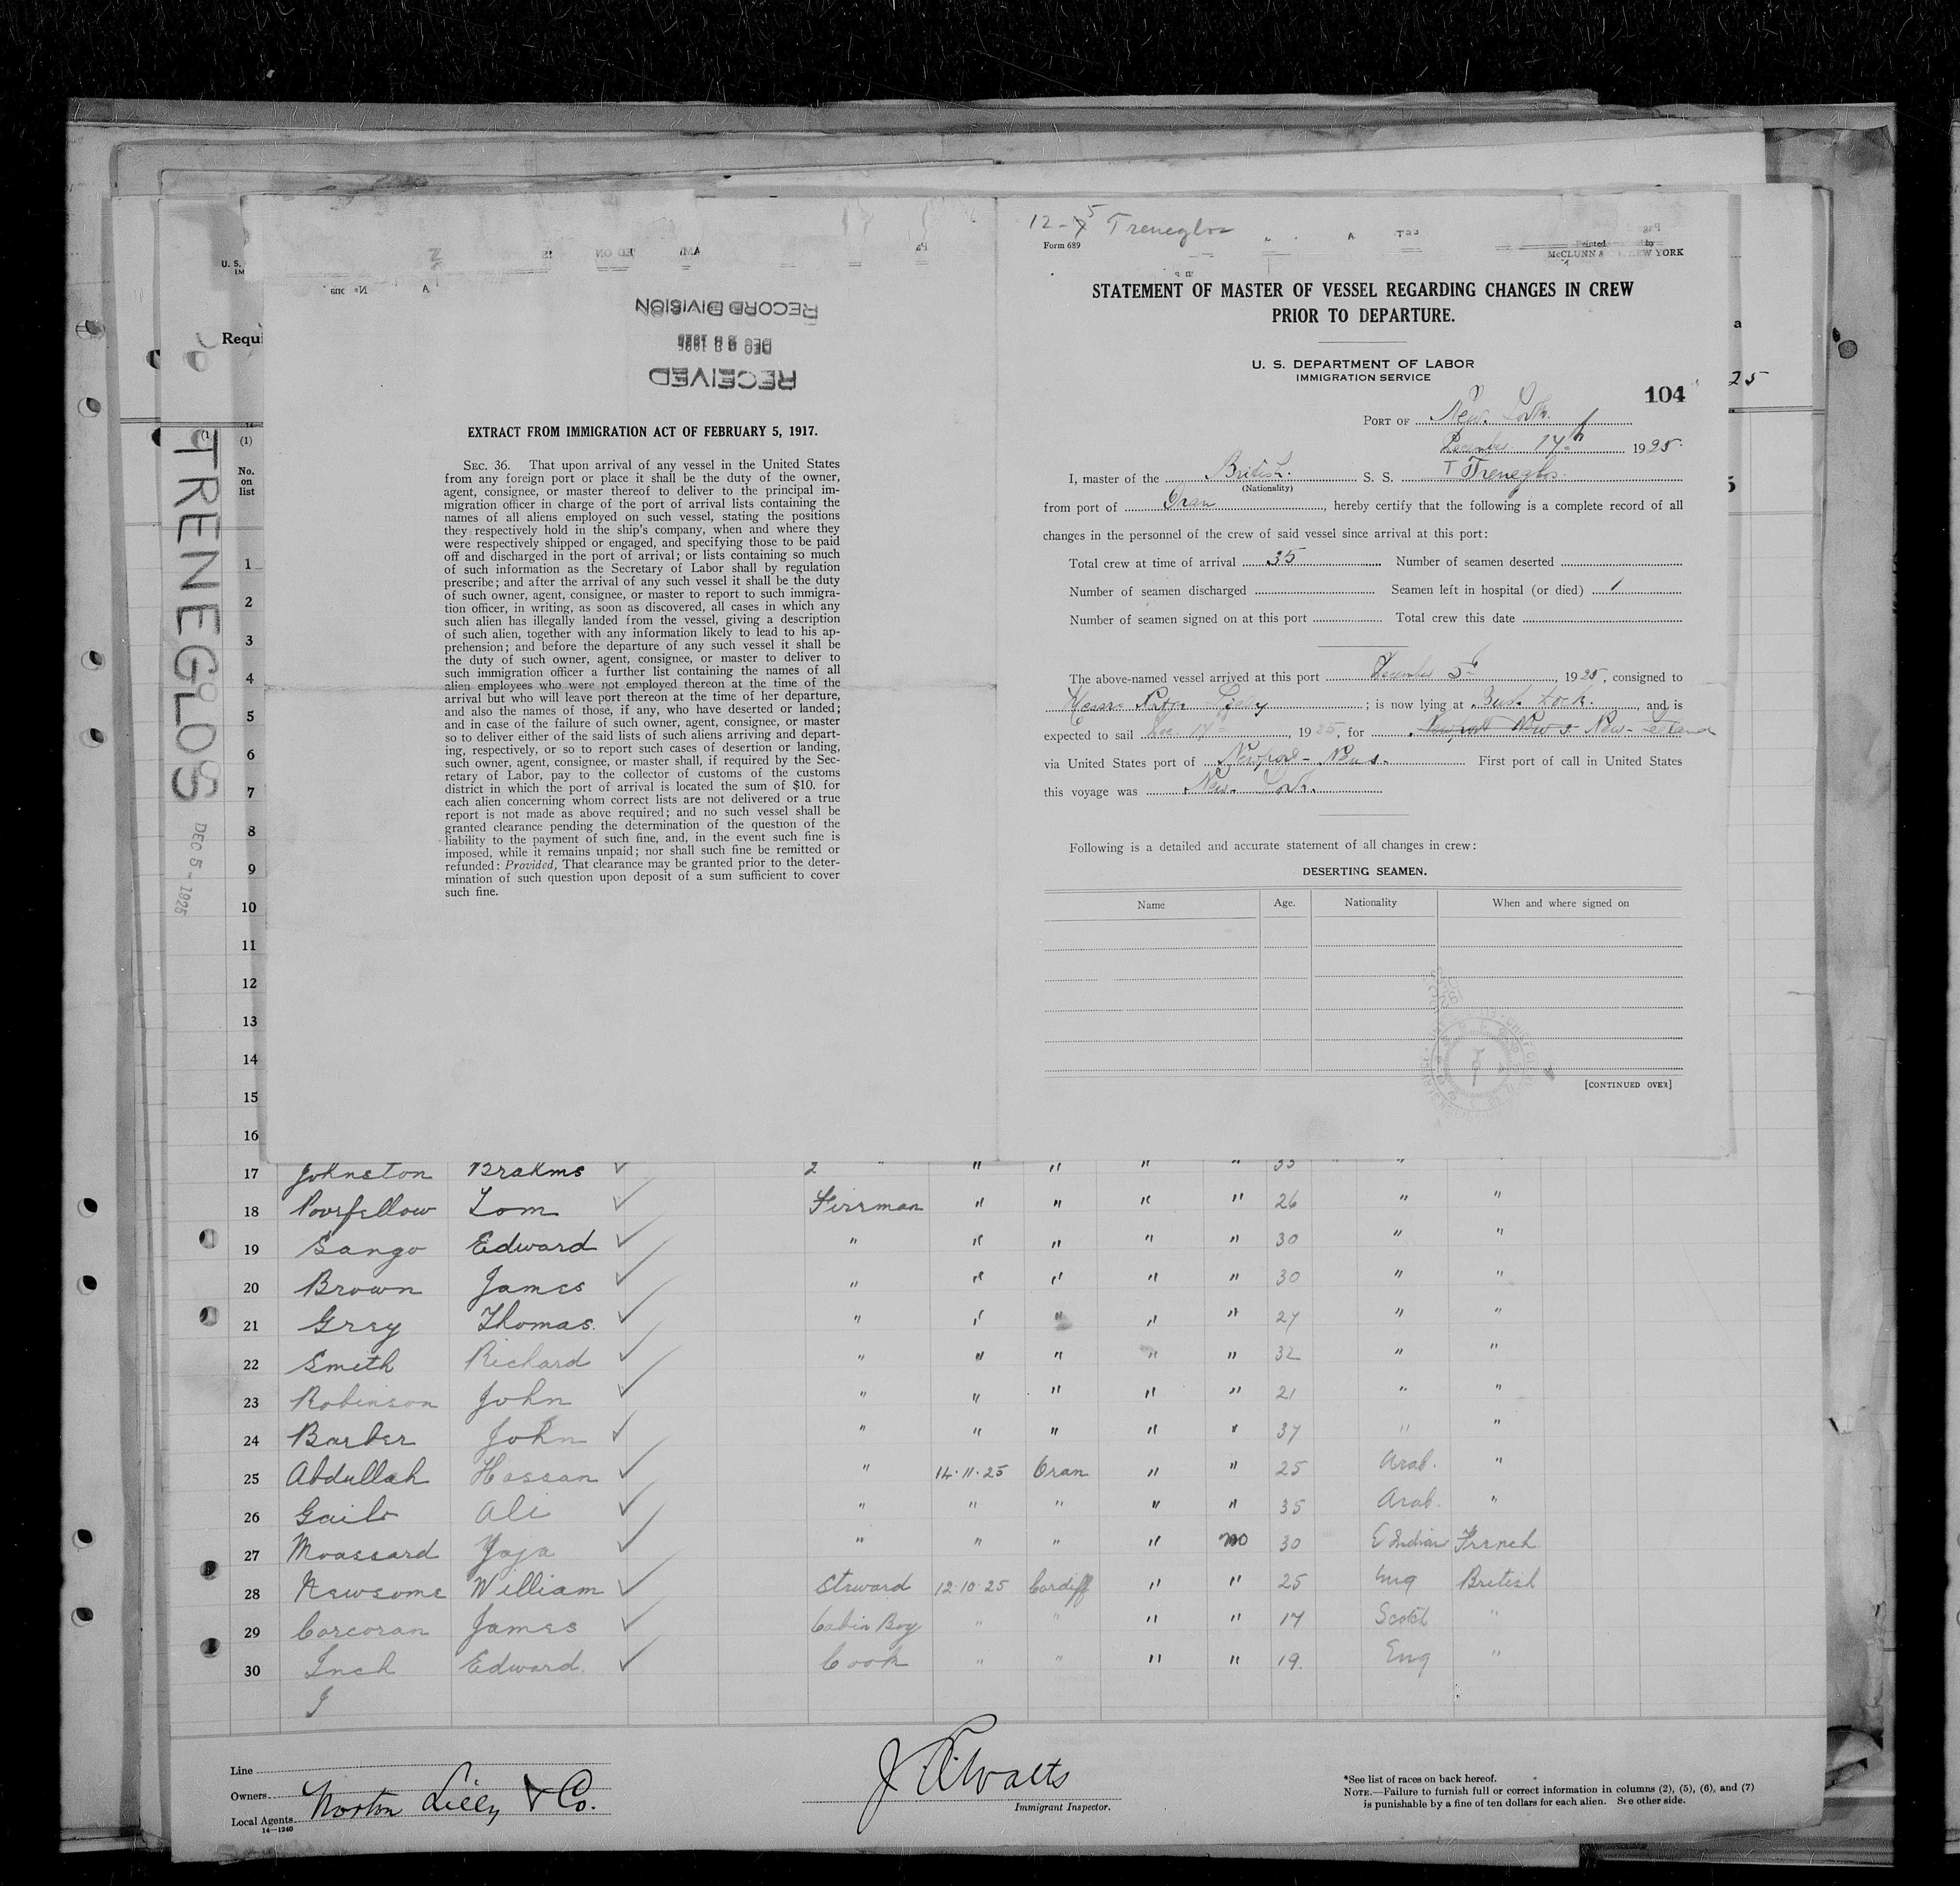 12-5 Treneglos
Form 689
Printed by
McCLUNN & NEW YORK
STATEMENT OF MASTER OF VESSEL REGARDING CHANGES IN CREW
PRIOR TO DEPARTURE.
U. S. DEPARTMENT OF LABOR
IMMIGRATION SERVICE
104
PORT OF New York.
December 17th 1925
I, master of the British S. S. Treneglos
(Nationality)
from port of Oran, hereby certify that the following is a complete record of all
changes in the personnel of the crew of said vessel since arrival at this port:
Total crew at time of arrival 35 Number of seamen deserted
Number of seamen discharged Seamen left in hospital (or died) 1
Number of seamen signed on at this port Total crew this date
The above-named vessel arrived at this port December 5th, 1925, consigned to
Messrs Norton Lilly; is now lying at Bush Dock., and is
expected to sail Dec. 17, 1925, for Newport News New-Zealand
via United States port of Newport-News. First port of call in United States
this voyage was New York.
Following is a detailed and accurate statement of all changes in crew:
DESERTING SEAMEN.
Name Age. Nationality When and where signed on
[CONTINUED OVER]
RECORD DIVISION
RECEIVED
EXTRACT FROM IMMIGRATION ACT OF FEBRUARY 5, 1917.
SEC. 36. That upon arrival of any vessel in the United States
from any foreign port or place it shall be the duty of the owner,
agent, consignee, or master thereof to deliver to the principal im-
migration officer in charge of the port of arrival lists containing the
names of all aliens employed on such vessel, stating the positions
they respectively hold in the ship's company, when and where they
were respectively shipped or engaged, and specifying those to be paid
off and discharged in the port of arrival; or lists containing so much
of such information as the Secretary of Labor shall by regulation
prescribe; and after the arrival of any such vessel it shall be the duty
of such owner, agent, consignee, or master to report to such immigra-
tion officer, in writing, as soon as discovered, all cases in which any
such alien has illegally landed from the vessel, giving a description
of such alien, together with any information likely to lead to his ap-
prehension; and before the departure of any such vessel it shall be
the duty of such owner, agent, consignee, or master to deliver to
such immigration officer a further list containing the names of all
alien employees who were not employed thereon at the time of the
arrival but who will leave port thereon at the time of her departure,
and also the names of those, if any, who have deserted or landed;
and in case of the failure of such owner, agent, consignee, or master
so to deliver either of the said lists of such aliens arriving and depart-
ing, respectively, or so to report such cases of desertion or landing,
such owner, agent, consignee, or master shall, if required by the Sec-
retary of Labor, pay to the collector of customs of the customs
district in which the port of arrival is located the sum of $10. for
each alien concerning whom correct lists are not delivered or a true
report is not made as above required; and no such vessel shall be
granted clearance pending the determination of the question of the
liability to the payment of such fine, and, in the event such fine is
imposed, while it remains unpaid; nor shall such fine be remitted or
refunded: Provided, That clearance may be granted prior to the deter-
mination of such question upon deposit of a sum sufficient to cover
such fine.
U. S.
IM
Requi
TRENEGLOS
DEC 5 - 1925
(1)
No.
on
list
1
2
3
4
5
6
7
8
9
10
11
12
13
14
15
16
17 Johnston Brahms 2 " " " " " 33 " "
18 Poorfellow Tom Firrman " " " " 26 " "
19 Sango Edward " " " " " 30 " "
20 Brown James " " " " " 30 " "
21 Grey Thomas. " " " " " 27 " "
22 Smith Richard " " " " " 32 " "
23 Robinson John " " " " " 21 " "
24 Barber John " " " " " 37 " "
25 Abdullah Hassan " 14.11.25 Oran " " 25 Arab. "
26 Gailo Ali " " " " " 35 Arab. "
27 Moassard Yaja " " " " no 30 E Indian French
28 Newsome William Steward 12.10.25 Cardiff " " 25 Eng British
29 Corcoran James Cabin Boy " " " " 17 Scotch "
30 Inch Edward. Cook " " " " 19. Eng "
Line
Owners
Local Agents Norton Lilly & Co.
14—1240
Immigrant Inspector.
*See list of races on back hereof.
NOTE.—Failure to furnish full or correct information in columns (2), (5), (6), and (7)
is punishable by a fine of ten dollars for each alien. See other side.